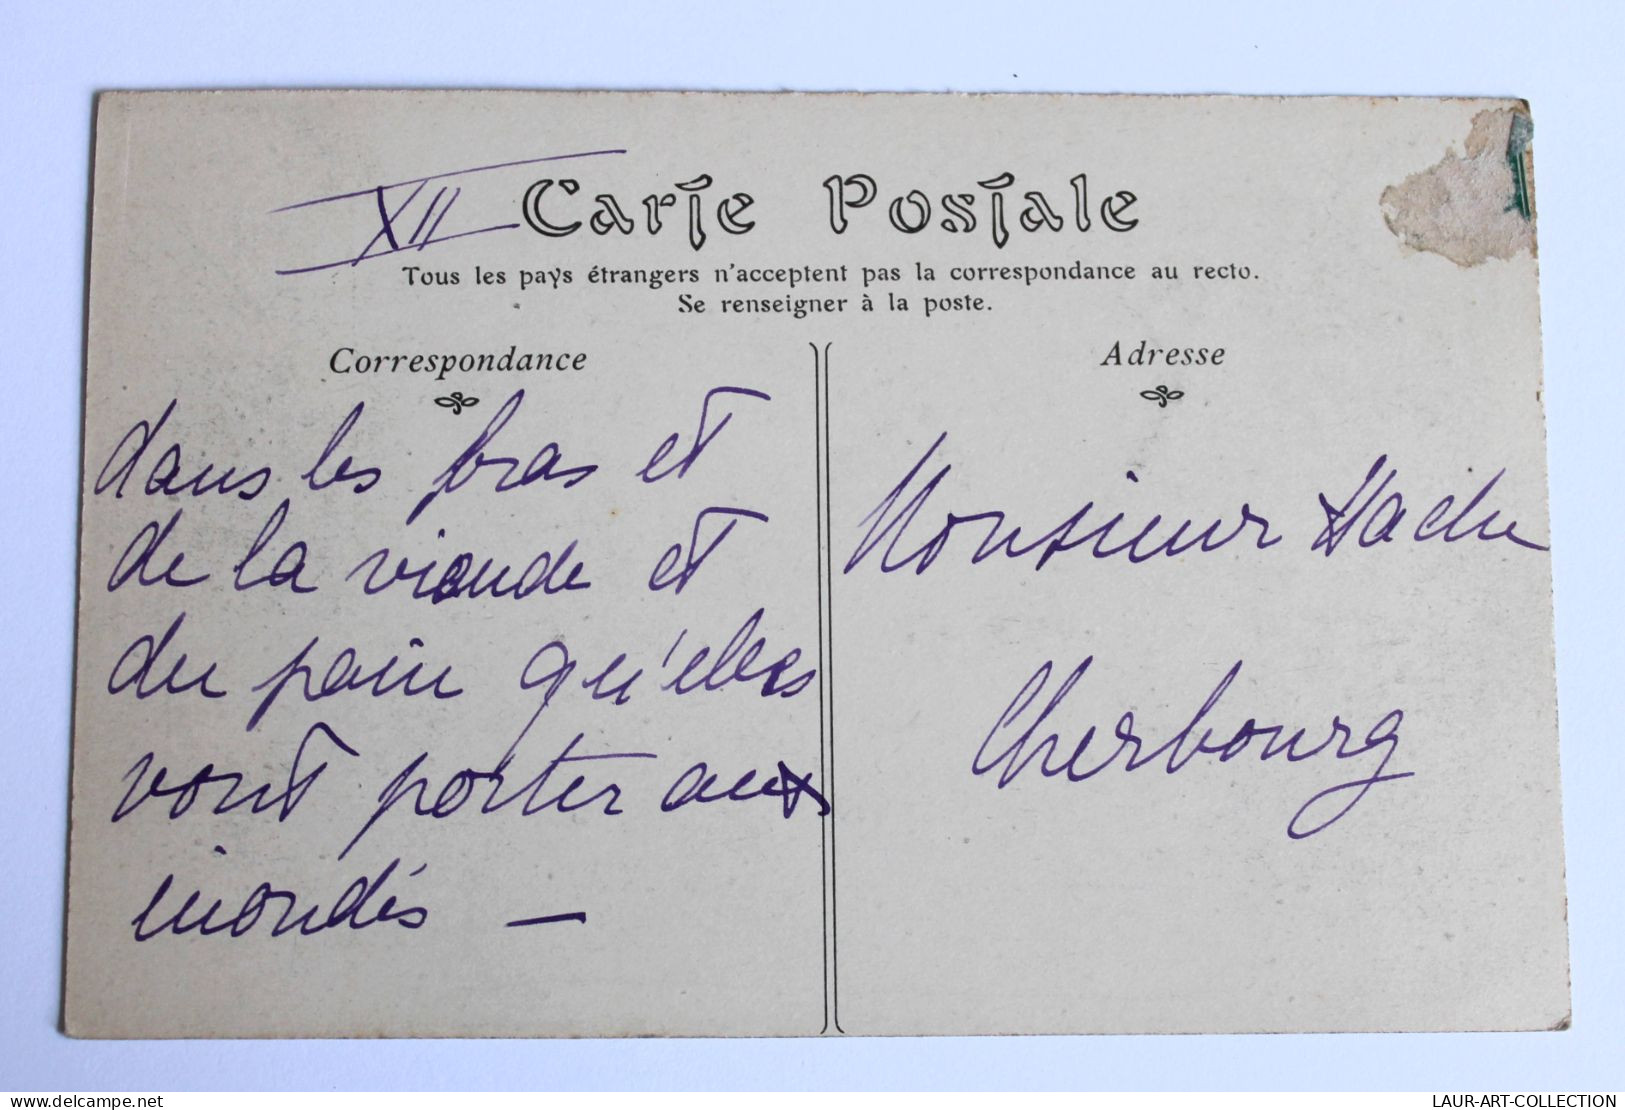 XII
Carte Postale
Tous les pays étrangers n'acceptent pas la correspondance au recto.
Se renseigner à la poste.
Correspondance
dans les bras et
de la viande et
du pain qu'elles
vont porter aux
inondés —
Adresse
Monsieur Hache
Cherbourg
https://www.delcampe.net
LAUR-ART-COLLECTION